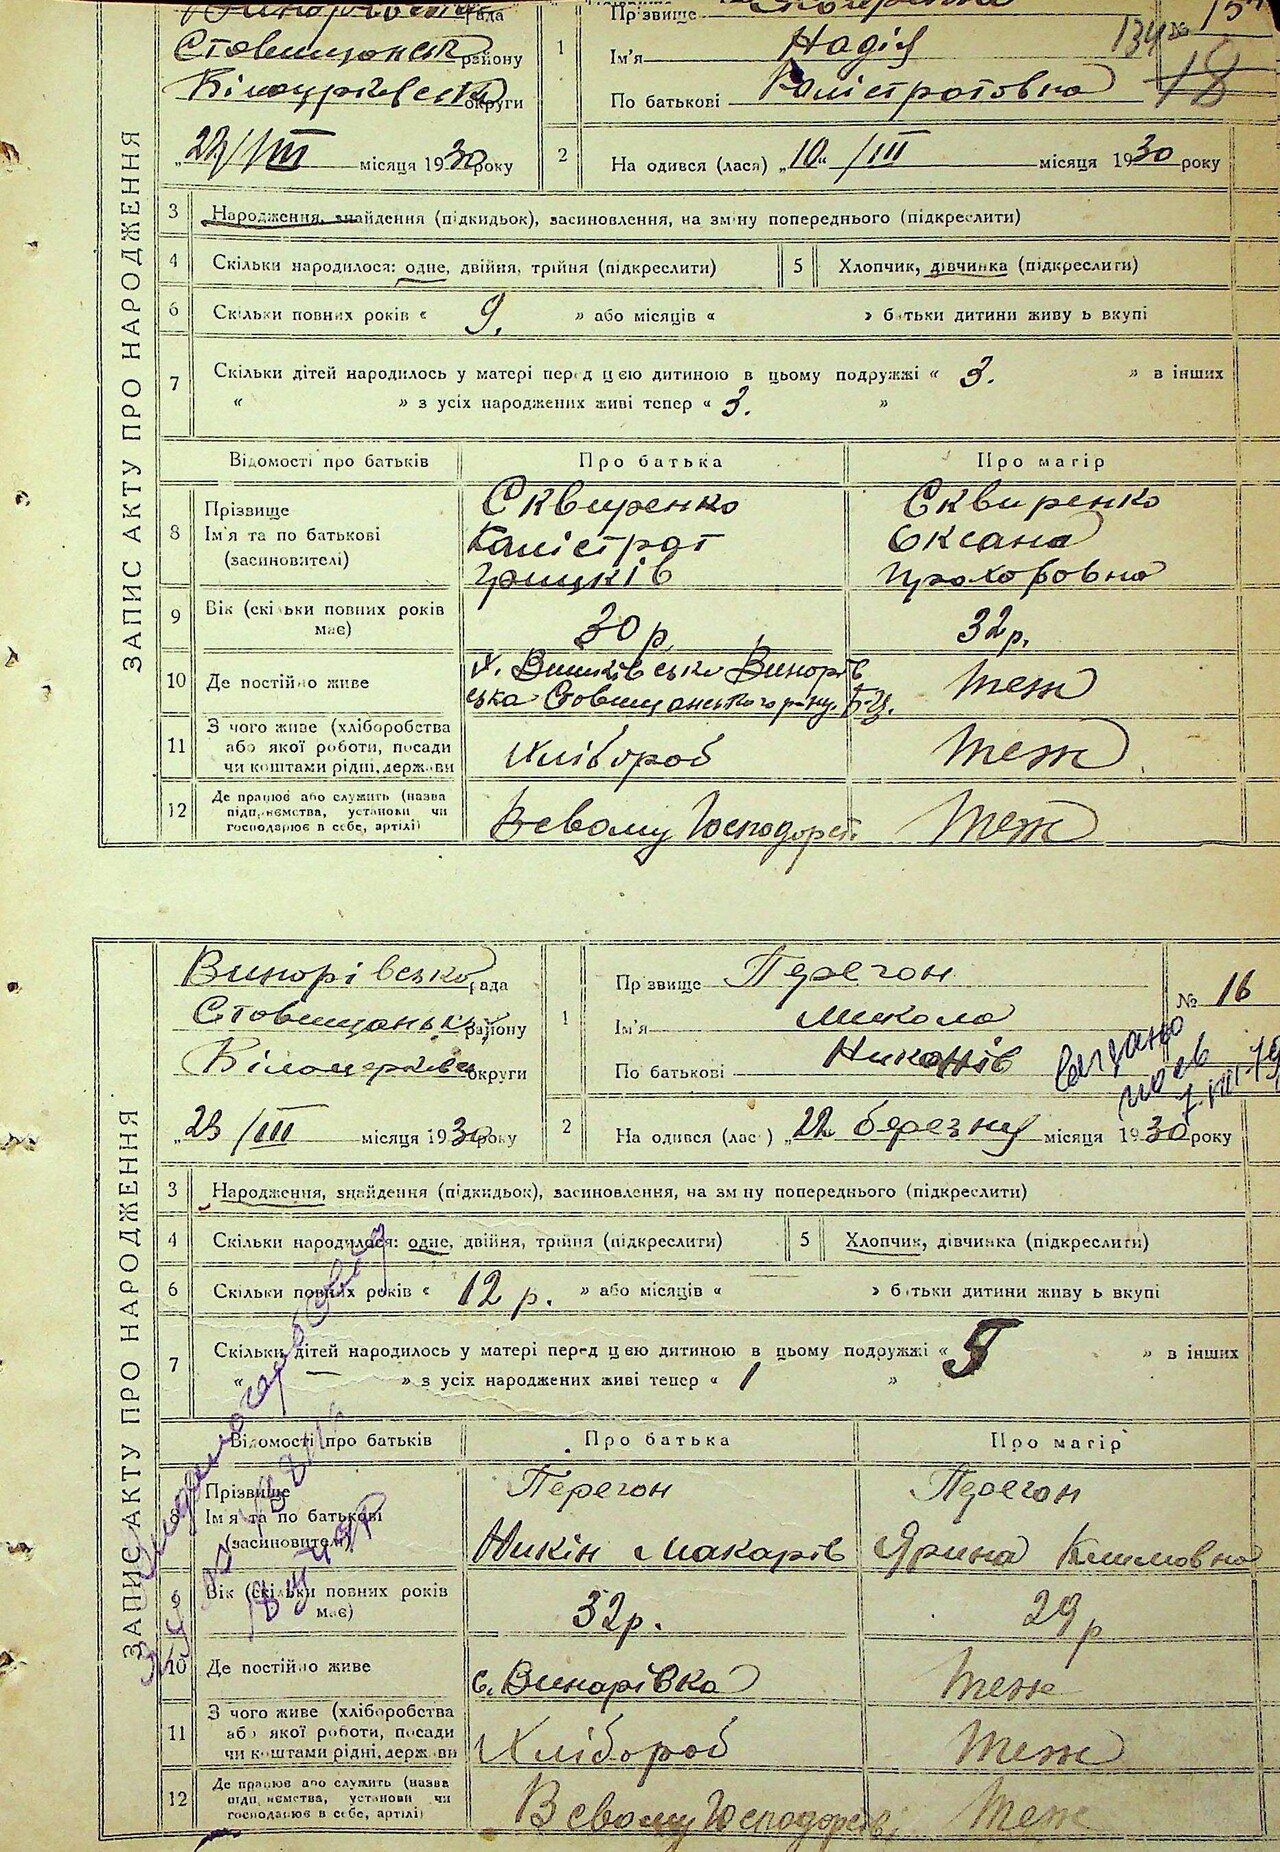 рада
Прізвище
15
Стовищанськ району
1
Ім'я Надія
134
Білоцрківська округи
По батькові Калістратовна
18
„22/III місяця 1930 року
2
На одився (лася) „10“ /III місяця 1930 року
ЗАПИС АКТУ ПРО НАРОДЖЕННЯ
3 Народження, знайдення (підкидьок), засиновлення, на зміну попереднього (підкреслити)
4 Скільки народилося: одне, двійня, трійня (підкреслити)
5 Хлопчик, дівчинка (підкреслити)
6 Скільки повних років « 9. » або місяців « » батьки дитини живу ь вкупі
7 Скільки дітей народилось у матері перед цією дитиною в цьому подружжі « 3. » в інших
« » з усіх народжених живі тепер « 3. »
Відомості про батьків
Про батька
Про матір
8
Прізвище
Ім'я та по батькові
(засиновителі)
Сквиренко
Калістрат
Грицків
Сквиренко
Оксана
Прохоровна
9 Вік (скільки повних років
має)
30 р
32 р.
10 Де постійно живе
х. Винорів
ська Стовищанського району. Б-Ц.
теж
11
З чого живе (хліборобства
або якої роботи, посади
чи коштами рідні, держави
Хлібороб
теж
12
Де працює або служить (назва
підприємства, установи чи
господарює в себе, артілі)
В свому Господарств
теж
Винорівська рада
Прізвище Перегон
№ 16
Стовищаньк району
1
Ім'я Микола
Білоцерків округи
По батькові Никонів
видано
7.VIII.19
„23 /III місяця 1930 року
2
На одився (лас ) „22 березня місяця 1930 року
ЗАПИС АКТУ ПРО НАРОДЖЕННЯ
3 Народження, знайдення (підкидьок), засиновлення, на зм ну попереднього (підкреслити)
4 Скільки народилося: одне, двійня, трійня (підкреслити)
5 Хлопчик, дівчинка (підкреслити)
6 Скільки повних років « 12 р. » або місяців « » батьки дитини живу ь вкупі
7 Скільки дітей народилось у матері перед цією дитиною в цьому подружжі « 5 » в інших
« — » з усіх народжених живі тепер « 1 »
Відомості про батьків
Про батька
Про матір
8
Прізвище
Ім'я та по батькові
(засиновителі)
Перегон
Никін Макарів
Перегон
Ярина Климовна
9 Вік (скільки повних років
має)
32 р.
29 р
10 Де постійно живе
с. Винарівка
теж
11
З чого живе (хліборобства
або якої роботи, посади
чи коштами рідні, держави
Хлібороб
теж
12
Де працює або служить (назва
підприємства, установи чи
господарює в себе, артілі)
В свому Господарстві
теж